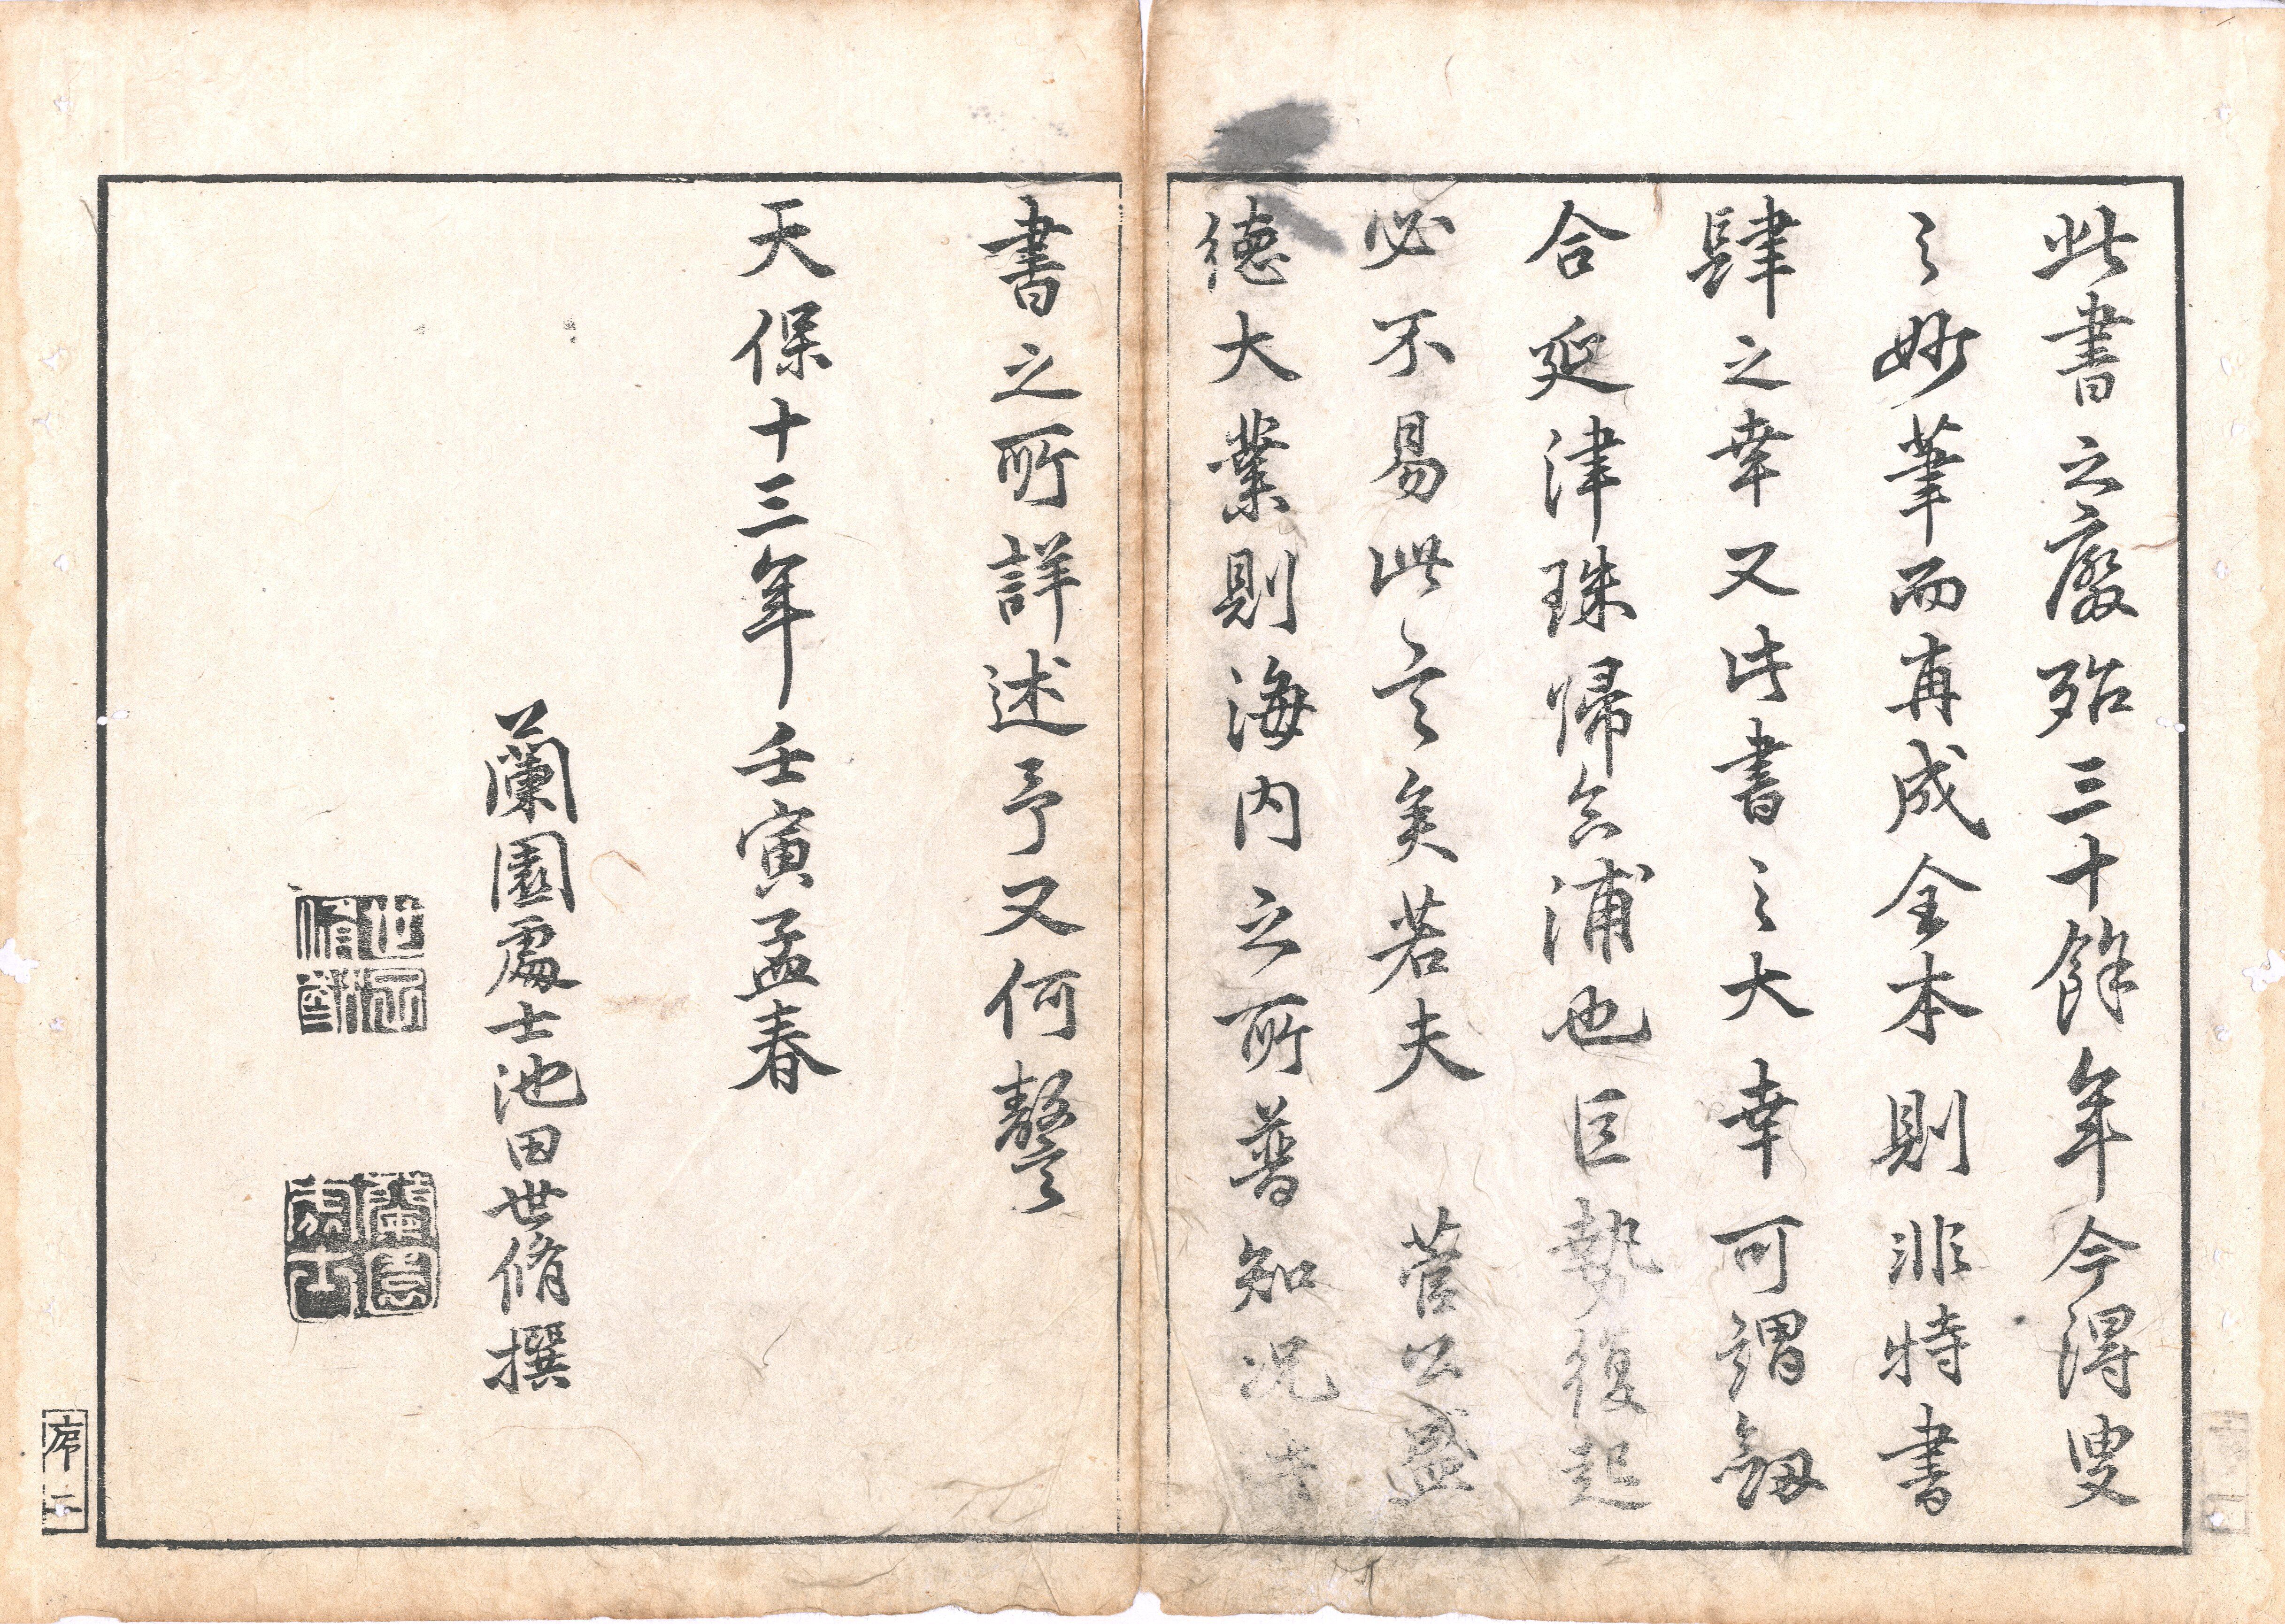 此書之廢殆三十餘年今得叟
之妙筆而再成全本則非特書
肆之幸又此書之大幸可謂劔
合延津珠帰合浦也巨勢復起
必不易此言矣若夫　菅公盛
徳大業則海内之所普知况
書之所詳述予又何謷
天保十三年壬寅孟春
蘭園處士池田世脩撰
序二